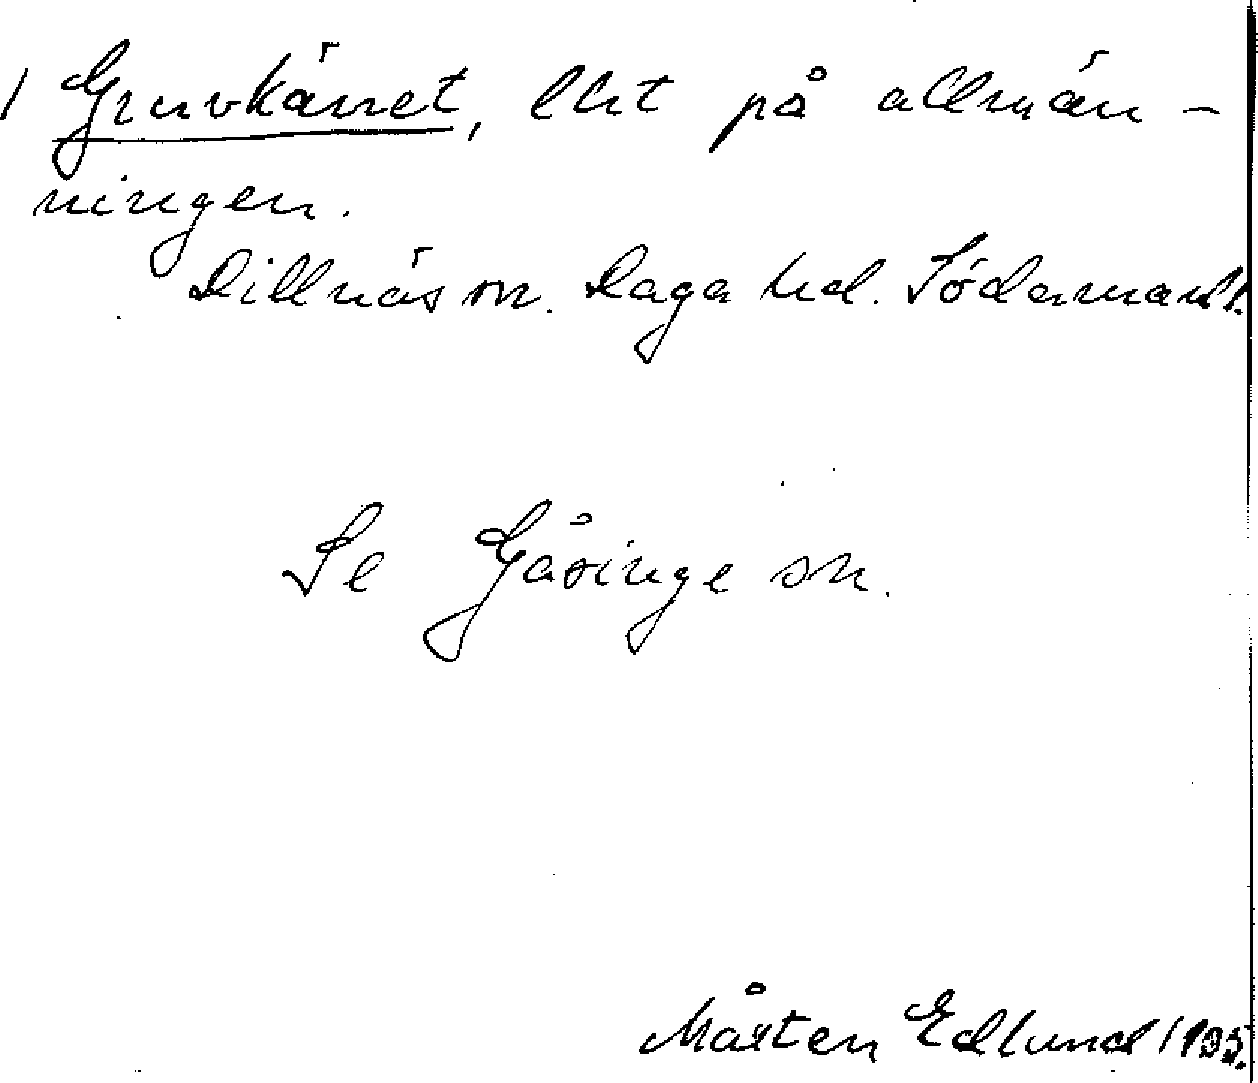 1 Gruvkärret, lht på allmän-
ningen.
Dillnäs sn. Daga hd. Södermanl.
Se Gåsinge sn.
Mårten Edlund 1935.